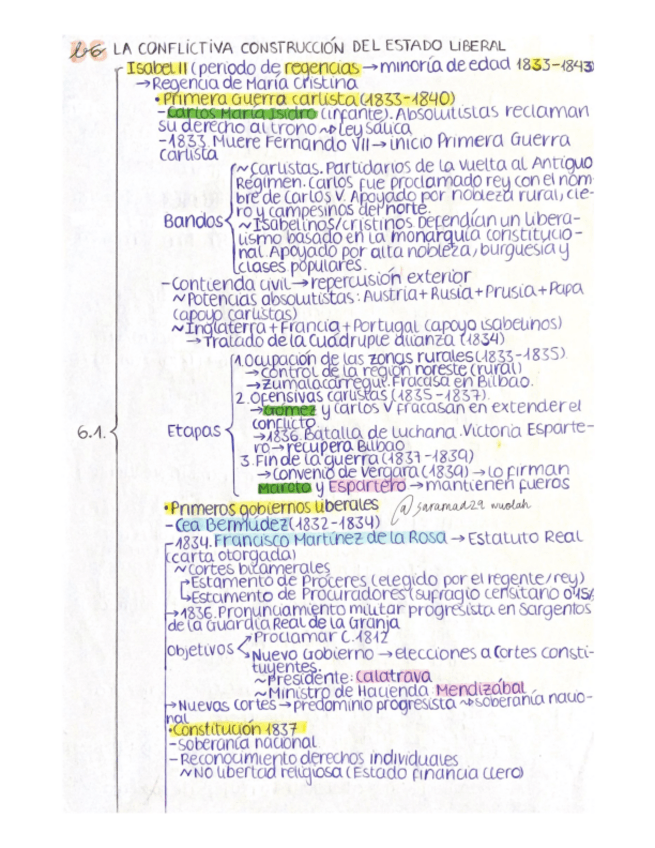 b6 LA CONFLICTIVA CONSTRUCCIÓN DEL ESTADO LIBERAL
Isabel II (periodo de regencias → minoría de edad 1833-1843
→ Regencia de María Cristina
• Primera Guerra carlista (1833-1840)
- Carlos María Isidro (infante). Absolutistas reclaman
su derecho al trono ~> Ley Sálica
- 1833 Muere Fernando VII → inicio Primera Guerra
carlista
~ Carlistas. Partidarios de la vuelta al Antiguo
Régimen. Carlos fue proclamado rey con el nom-
bre de Carlos V. Apoyado por nobleza rural, cle-
ro y campesinos del norte.
Bandos
~ Isabelinos/cristinos Defendían un libera-
lismo basado en la monarquía constitucio-
nal. Apoyado por alta nobleza, burguesía y
clases populares.
- Contienda civil → repercusión exterior
~ Potencias absolutistas: Austria + Rusia + Prusia + Papa
(apoyo carlistas)
~ Inglaterra + Francia + Portugal (apoyo isabelinos)
→ Tratado de la Cuádruple alianza (1834)
1. Ocupación de las zonas rurales (1833-1835)
→ control de la región noreste (rural)
→ Zumalacárregui. Fracasa en Bilbao.
2. Ofensivas carlistas (1835-1837)
→ Gómez y Carlos V fracasan en extender el
conflicto
6.1.
Etapas
→ 1836. Batalla de Luchana. Victoria Esparte-
ro → recupera Bilbao
3. Fin de la guerra (1837-1839)
→ Convenio de Vergara (1839) → lo firman
Maroto y Espartero → mantienen fueros
• Primeros gobiernos liberales
@saramad29 wuolah
- Cea Bermúdez (1832-1834)
- 1834. Francisco Martínez de la Rosa → Estatuto Real
(carta otorgada)
~ Cortes bicamerales
Estamento de Próceres (elegido por el regente/rey)
Estamento de Procuradores (sufragio censitario 0'15%
→ 1836. Pronunciamiento militar progresista en Sargentos
de la Guardia Real de la Granja
Proclamar C. 1812
Objetivos
Nuevo Gobierno → elecciones a Cortes consti-
tuyentes.
~ Presidente: Calatrava
~ Ministro de Hacienda: Mendizábal
→ Nuevas Cortes → Predominio progresista ~> soberanía nacio-
nal
• Constitución 1837
- Soberanía nacional
- Reconocimiento derechos individuales
~ NO libertad religiosa (Estado financia clero)